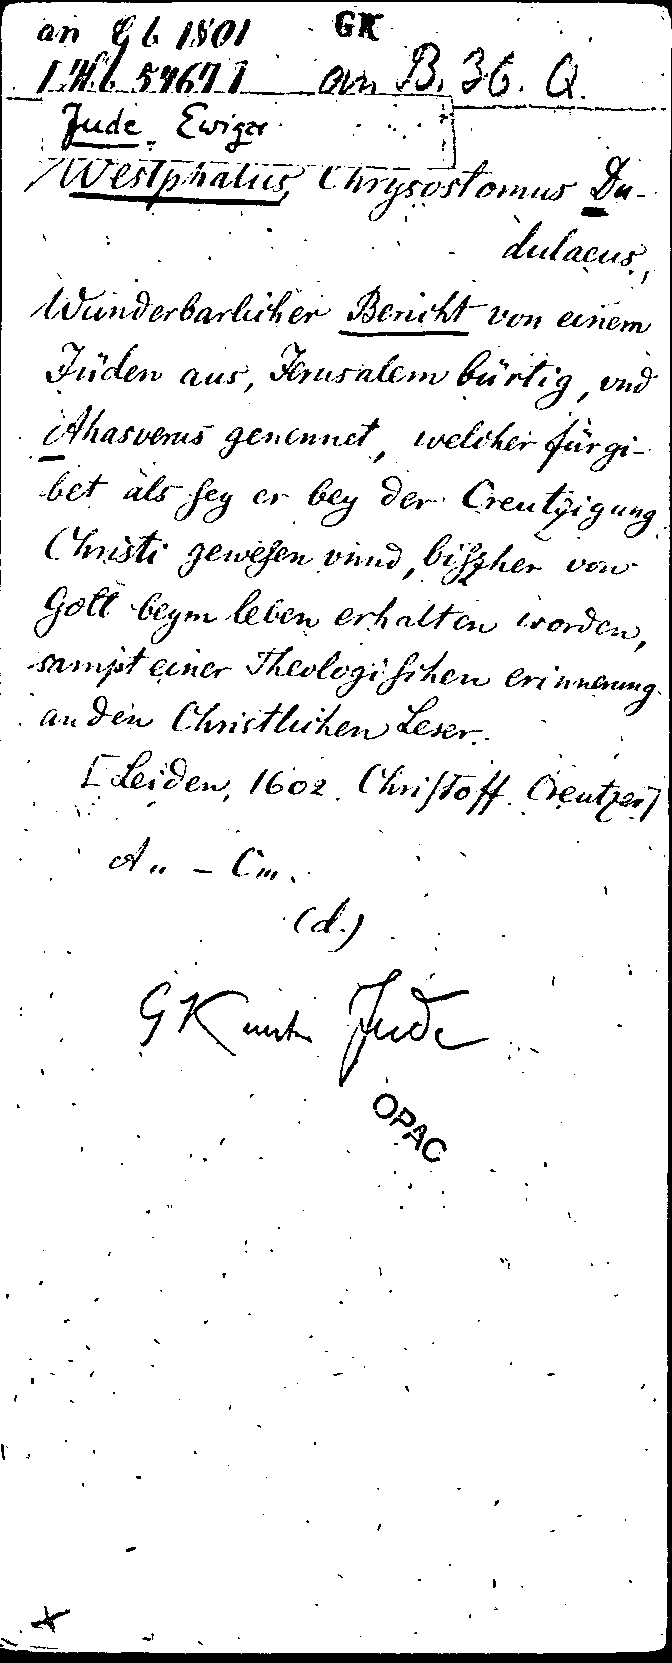 an Gb 1801 GK
an B. 36. Q.
Jude, Ewiger
Westphalus, Chrysostomus Du-
dulaeus,
Wunderbarlicher Bericht von einem
Jüden aus, Jerusalem bürtig, und
Ahasverus genennet, welcher fürgi-
bet als sey er bey der Creutzigung
Christi gewesen vnnd, bißher von
Gott beym leben erhalten worden,
sampt einer Theologischen erinnerung
an den Christlichen Leser.
[Leiden, 1602. Christoff Creutzer]
A.. - C...
(d.)
GK unter Jude
OPAC